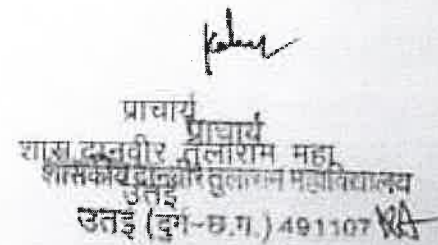 प्राचार्य
प्राचार्य
शास.दानवीर तुलाराम महा.
शासकीय दानवीर तुलाराम महाविद्यालय
उतई
उतई (दुर्ग-छ.ग.) 491107